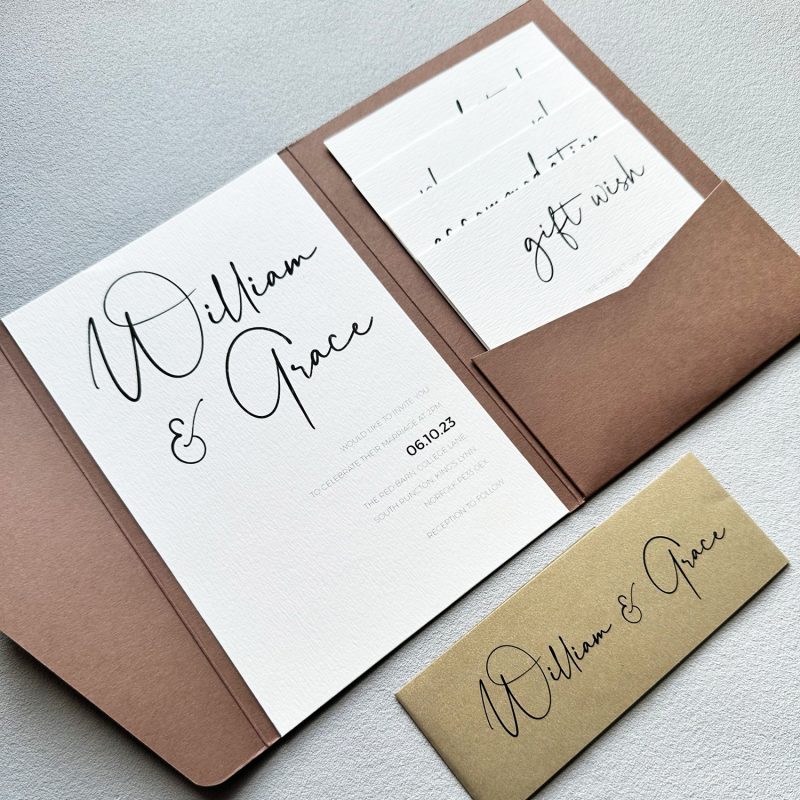 William
& Grace
WOULD LIKE TO INVITE YOU
TO CELEBRATE THEIR MARRIAGE AT 2PM
06.10.23
THE RED BARN, COLLEGE LANE,
SOUTH RUNCTON, KING'S LYNN,
NORFOLK PE33 0EX
RECEPTION TO FOLLOW
accommodation
gift wish
William & Grace